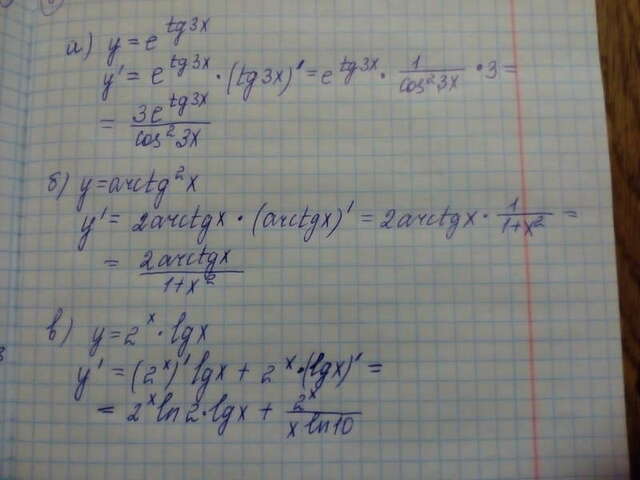 а) y = e^tg3x
y' = e^tg3x · (tg3x)' = e^tg3x · 1/cos²3x · 3 =
= 3e^tg3x/cos²3x
б) y = arctg²x
y' = 2arctgx · (arctgx)' = 2arctgx · 1/1+x² =
= 2arctgx/1+x²
в) y = 2^x · lgx
y' = (2^x)' lgx + 2^x · (lgx)' =
= 2^x ln2 · lgx + 2^x/x ln10